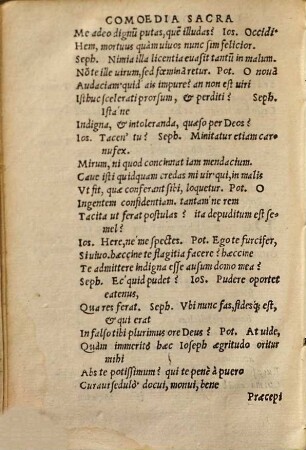 COMOEDIA SACRA
Me adeo dignũ putas, quẽ illudas? Ios. Occidi.
Hem, mortuus quàm uiuos nunc sim felicior.
Seph. Nimia illa licentia euasit tantũ in malum.
Nõ te ille uirum, sed fœmina retur. Pot. O nouã
Audaciam quid ais impure? an non est uiri
Istihuc scelerati prorsum, & perditi? Seph.
Istáne
Indigna, & intoleranda, quæso per Deos?
Ios. Tacen' tu? Seph. Minitatur etiam car⸗
nufex.
Mirum, ni quod concinnat iam mendacium.
Caue isti quidquam credas mi uir qui, in malis
Vt fit, quæ conferant sibi, loquetur. Pot. O
Ingentem confidentiam. tantamne rem
Tacita ut ferat postulas? ita depuditum est se⸗
mel?
Ios. Here, ne' me spectes. Pot. Ego te furcifer,
Si uiuo. hæccine te flagitia facere? hæccine
Te admittere indigna esse ausum domo mea?
Seph. Ec'quid pudet? Ios. Pudere oportet
eatenus,
Qua res ferat. Seph. Vbi nunc fas, fidesq; est,
& qui erat
In falso tibi plurimus ore Deus? Pot. At uide,
Quàm immeritò hæc Ioseph ægritudo oritur
mihi
Abs te potissimum? qui te penè à puero
Curaui sedulò docui, monui, bene
Præcepi